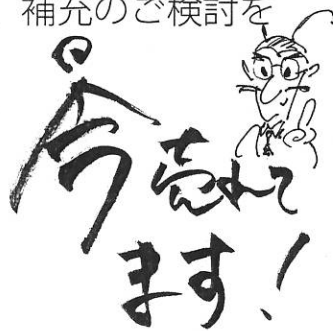 補充のご検討を
今売れて
ます!